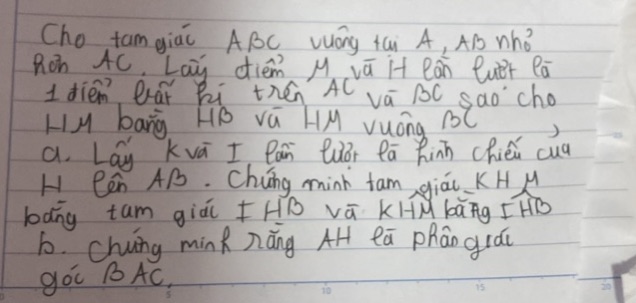 Cho tam giác ABC vuông tại A, AB nhỏ
hơn AC. Lấy điểm M và H lần lượt là
1 điểm bất kì trên AC và BC sao cho
HM bằng HB và HM vuông BC
a. Lấy K và I lần lượt là hình chiếu của
H lên AB. Chứng minh tam giác KHM
bằng tam giác IHB và KHM bằng IHB
b. Chứng minh rằng AH là phân giác
góc BAC.
5 10 15 20